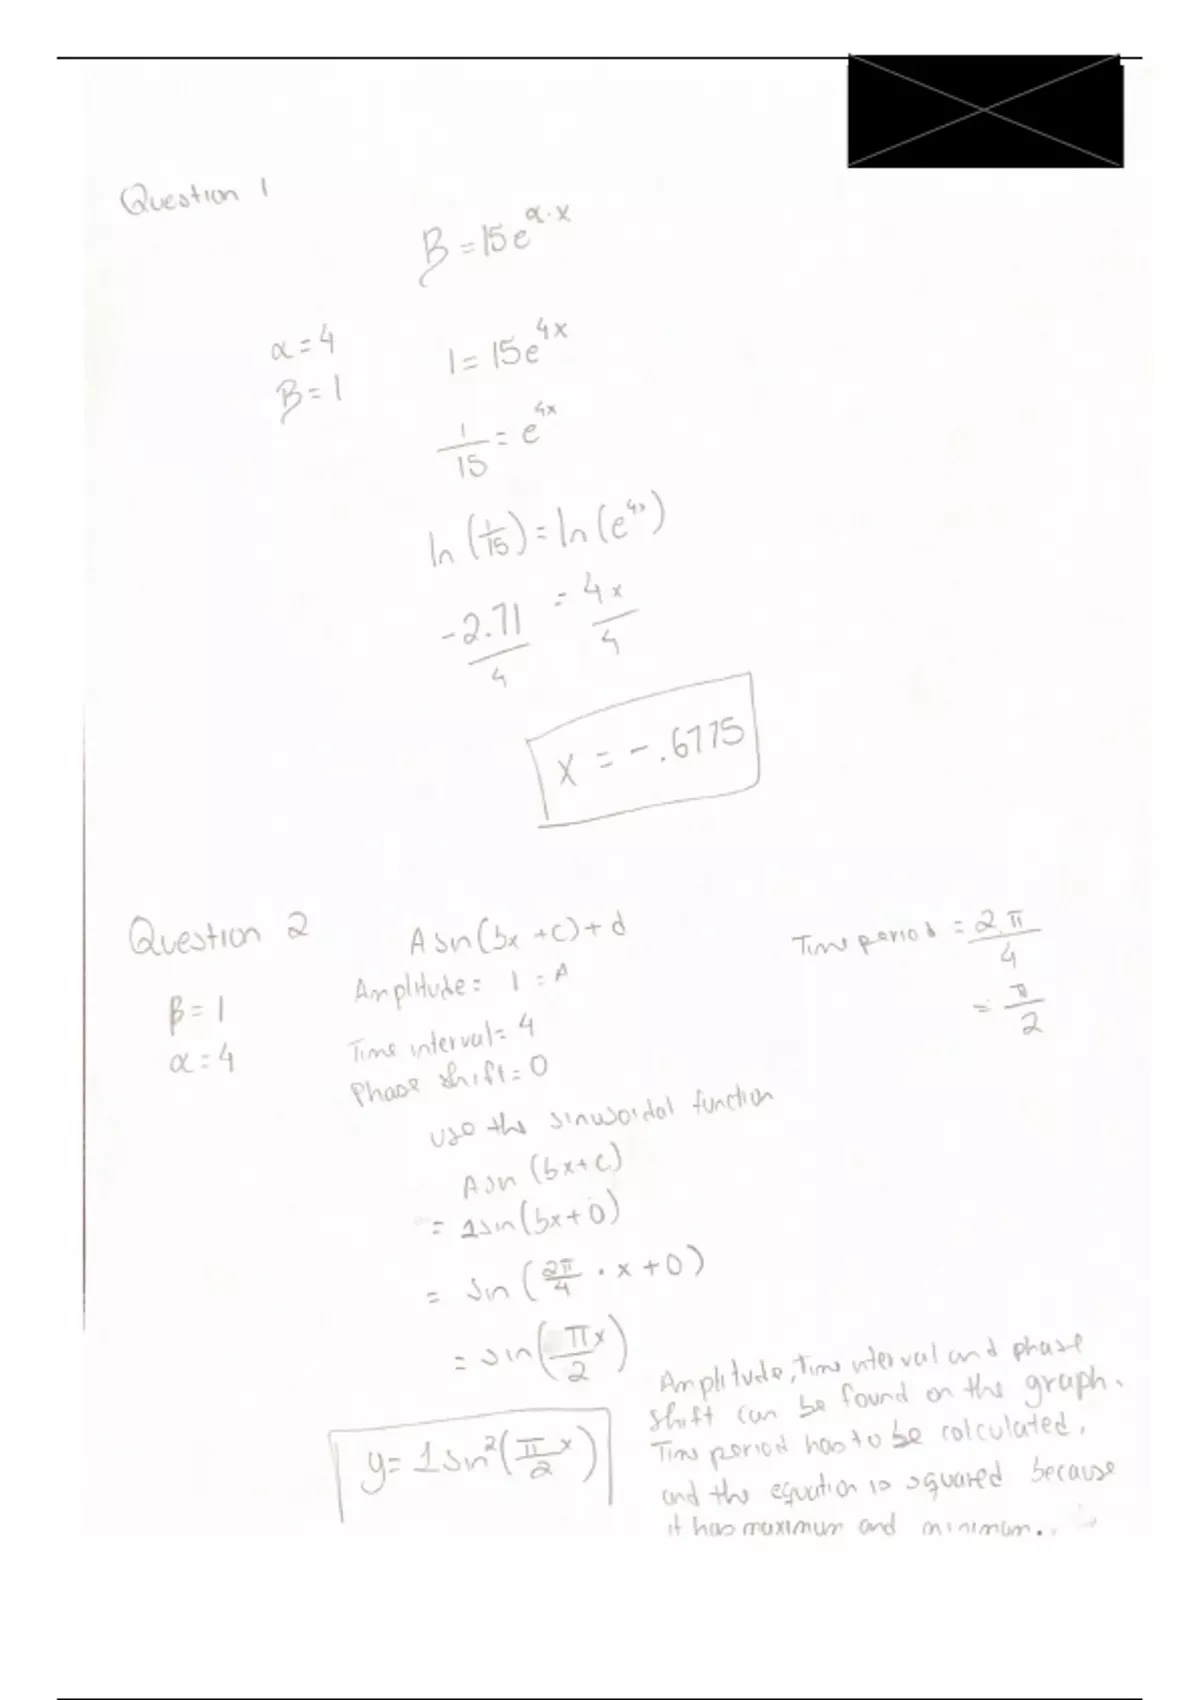 Question 1
β = 15e^α·x
α = 4
β = 1
1 = 15e^4x
1/15 = e^4x
ln (1/15) = ln (e^4x)
-2.71/4 = 4x/4
x = -.6775
Question 2
A sin (bx + c) + d
Time period = 2π/4
= π/2
β = 1
α = 4
Amplitude = 1 = A
Time interval = 4
Phase shift = 0
use the sinusoidal function
A sin (bx + c)
= 1 sin (bx + 0)
= sin (2π/4 · x + 0)
= sin (πx/2)
y = 1 sin² (π/2 x)
Amplitude, Time interval and phase
shift can be found on the graph.
Time period has to be calculated,
and the equation is squared because
it has maximum and minimum.